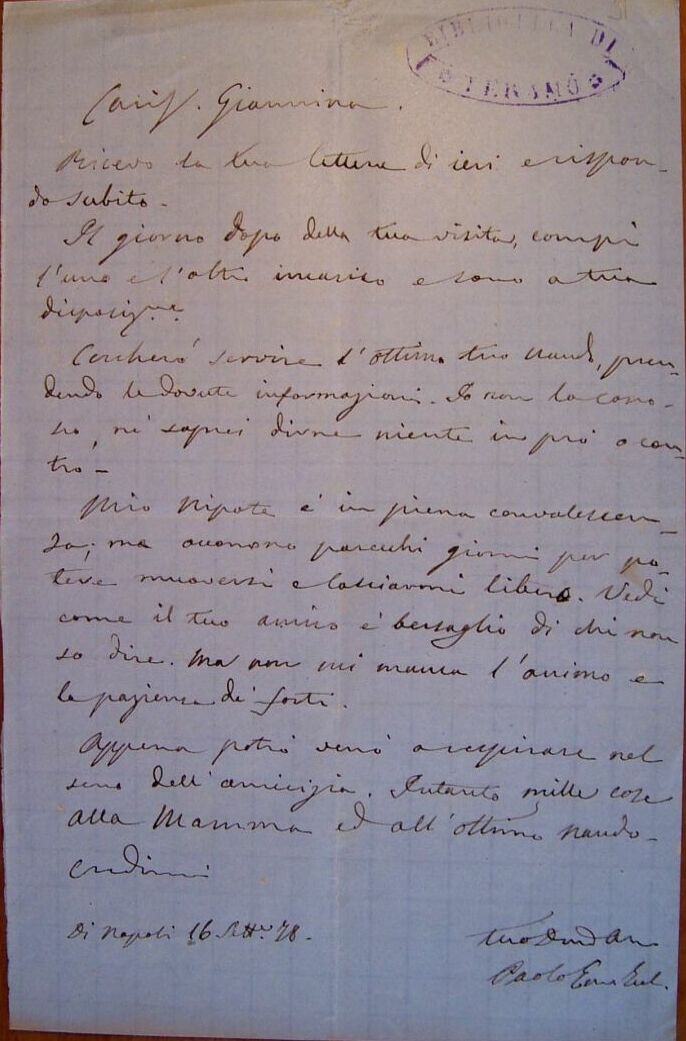 BIBLIOTECA DI
TERAMO
Cariss. Giannina.
Ricevo la tua lettera di ieri e rispon-
do subito.
Il giorno dopo della tua visita, compii
l'uno e l'altro incarico e sono a tua
disposizne.
Cercherò servire l'ottimo tuo Nando, pren-
dendo le dovute informazioni. Io non la cono-
sco, nè saprei dirne niente in prò o con-
tro-
Mio Nipote è in piena convalescen-
za; ma occorrono parecchi giorni per po-
tere muoversi e lasciarmi libero. Vedi
come il tuo amico è bersaglio di chi non
so dire. Ma non mi manca l'animo e
la pazienza de' forti.
Appena potrò verrò a respirare nel
seno dell'amicizia. Intanto mille cose
alla Mamma ed all'ottimo Nando-
Credimi
Di Napoli 16 Sett. 78.
tuo
Paolo